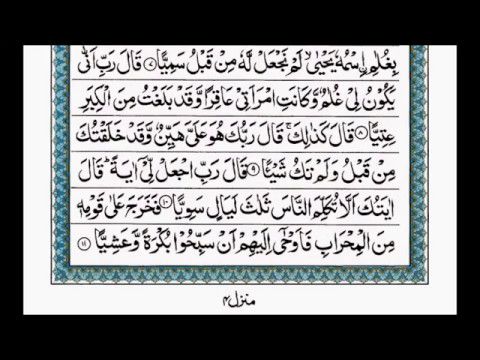 بِغُلٰمِ ۨاسْمُهٗ يَحْيٰىۙ لَمْ نَجْعَلْ لَّهٗ مِنْ قَبْلُ سَمِيًّا ۷ قَالَ رَبِّ اَنّٰى
يَكُوْنُ لِيْ غُلٰمٌ وَّ كَانَتِ امْرَاَتِيْ عَاقِرًا وَّ قَدْ بَلَغْتُ مِنَ الْكِبَرِ
عِتِيًّا ۸ قَالَ كَذٰلِكَۚ قَالَ رَبُّكَ هُوَ عَلَيَّ هَيِّنٌ وَّ قَدْ خَلَقْتُكَ
مِنْ قَبْلُ وَ لَمْ تَكُ شَيْـًٔا ۹ قَالَ رَبِّ اجْعَلْ لِّيْۤ اٰيَةًؕ قَالَ
اٰيَتُكَ اَلَّا تُكَلِّمَ النَّاسَ ثَلٰثَ لَيَالٍ سَوِيًّا ۱۰ فَخَرَجَ عَلٰى قَوْمِهٖ
مِنَ الْمِحْرَابِ فَاَوْحٰۤى اِلَيْهِمْ اَنْ سَبِّحُوْا بُكْرَةً وَّ عَشِيًّا ۱۱
منزل ۴